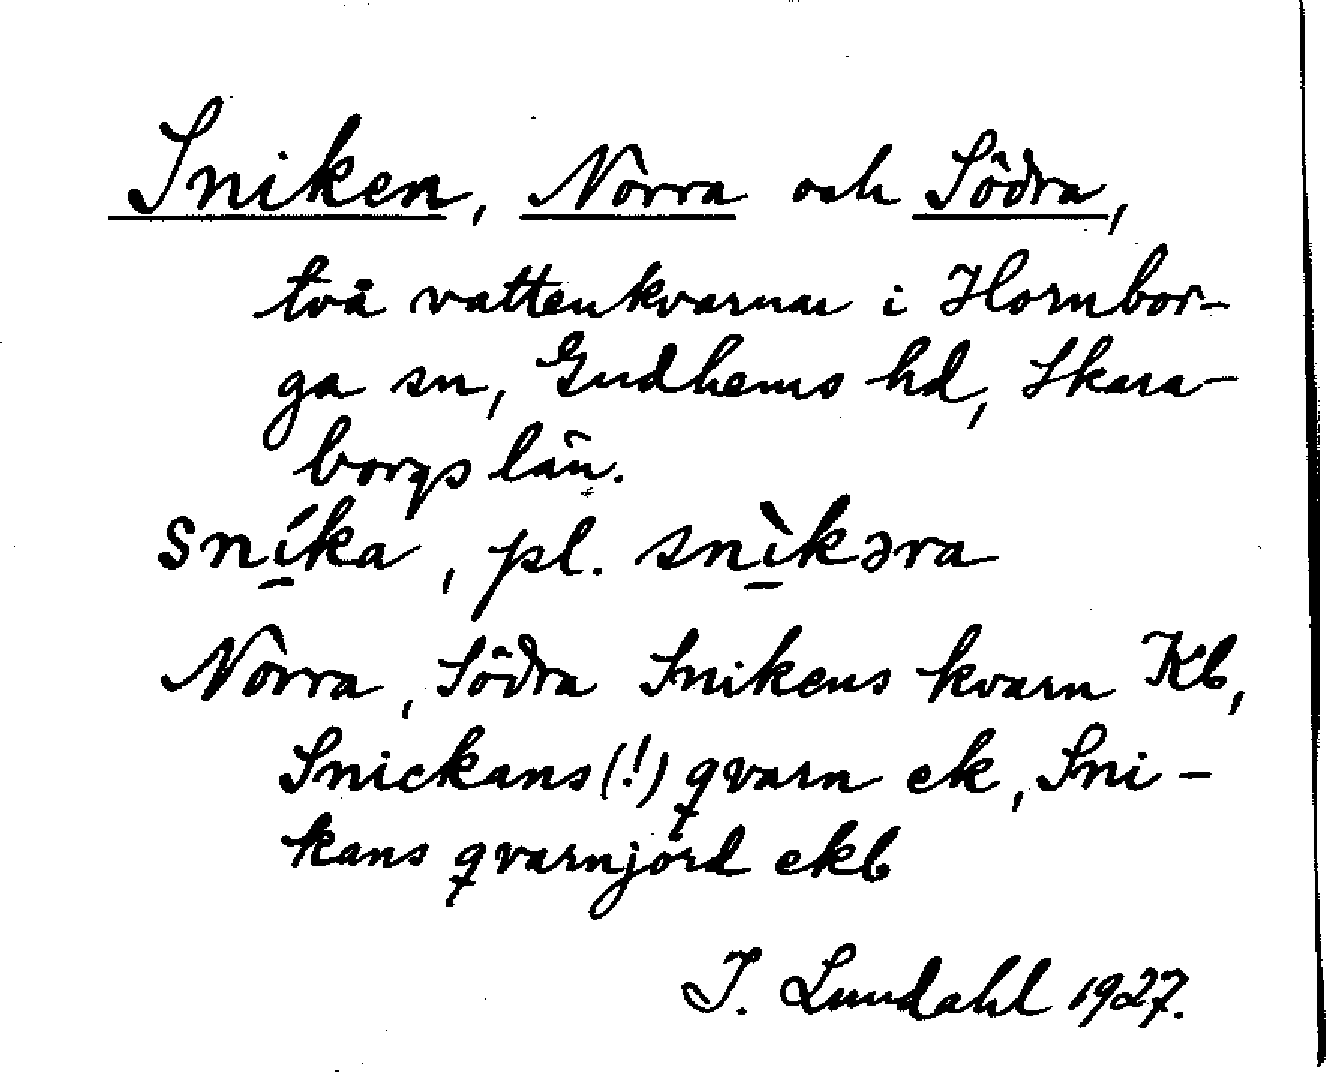 Sniken, Norra och Södra,
två vattenkvarnar i Hornbor-
ga sn, Gudhems hd, Skara-
borgs län.
sní̱ka, pl. snì̱kəra
Norra, Södra Snikens kvarn Kb,
Snickans(!) qvarn ek, Sni-
kans qvarnjord ekb
I. Lundahl 1927.